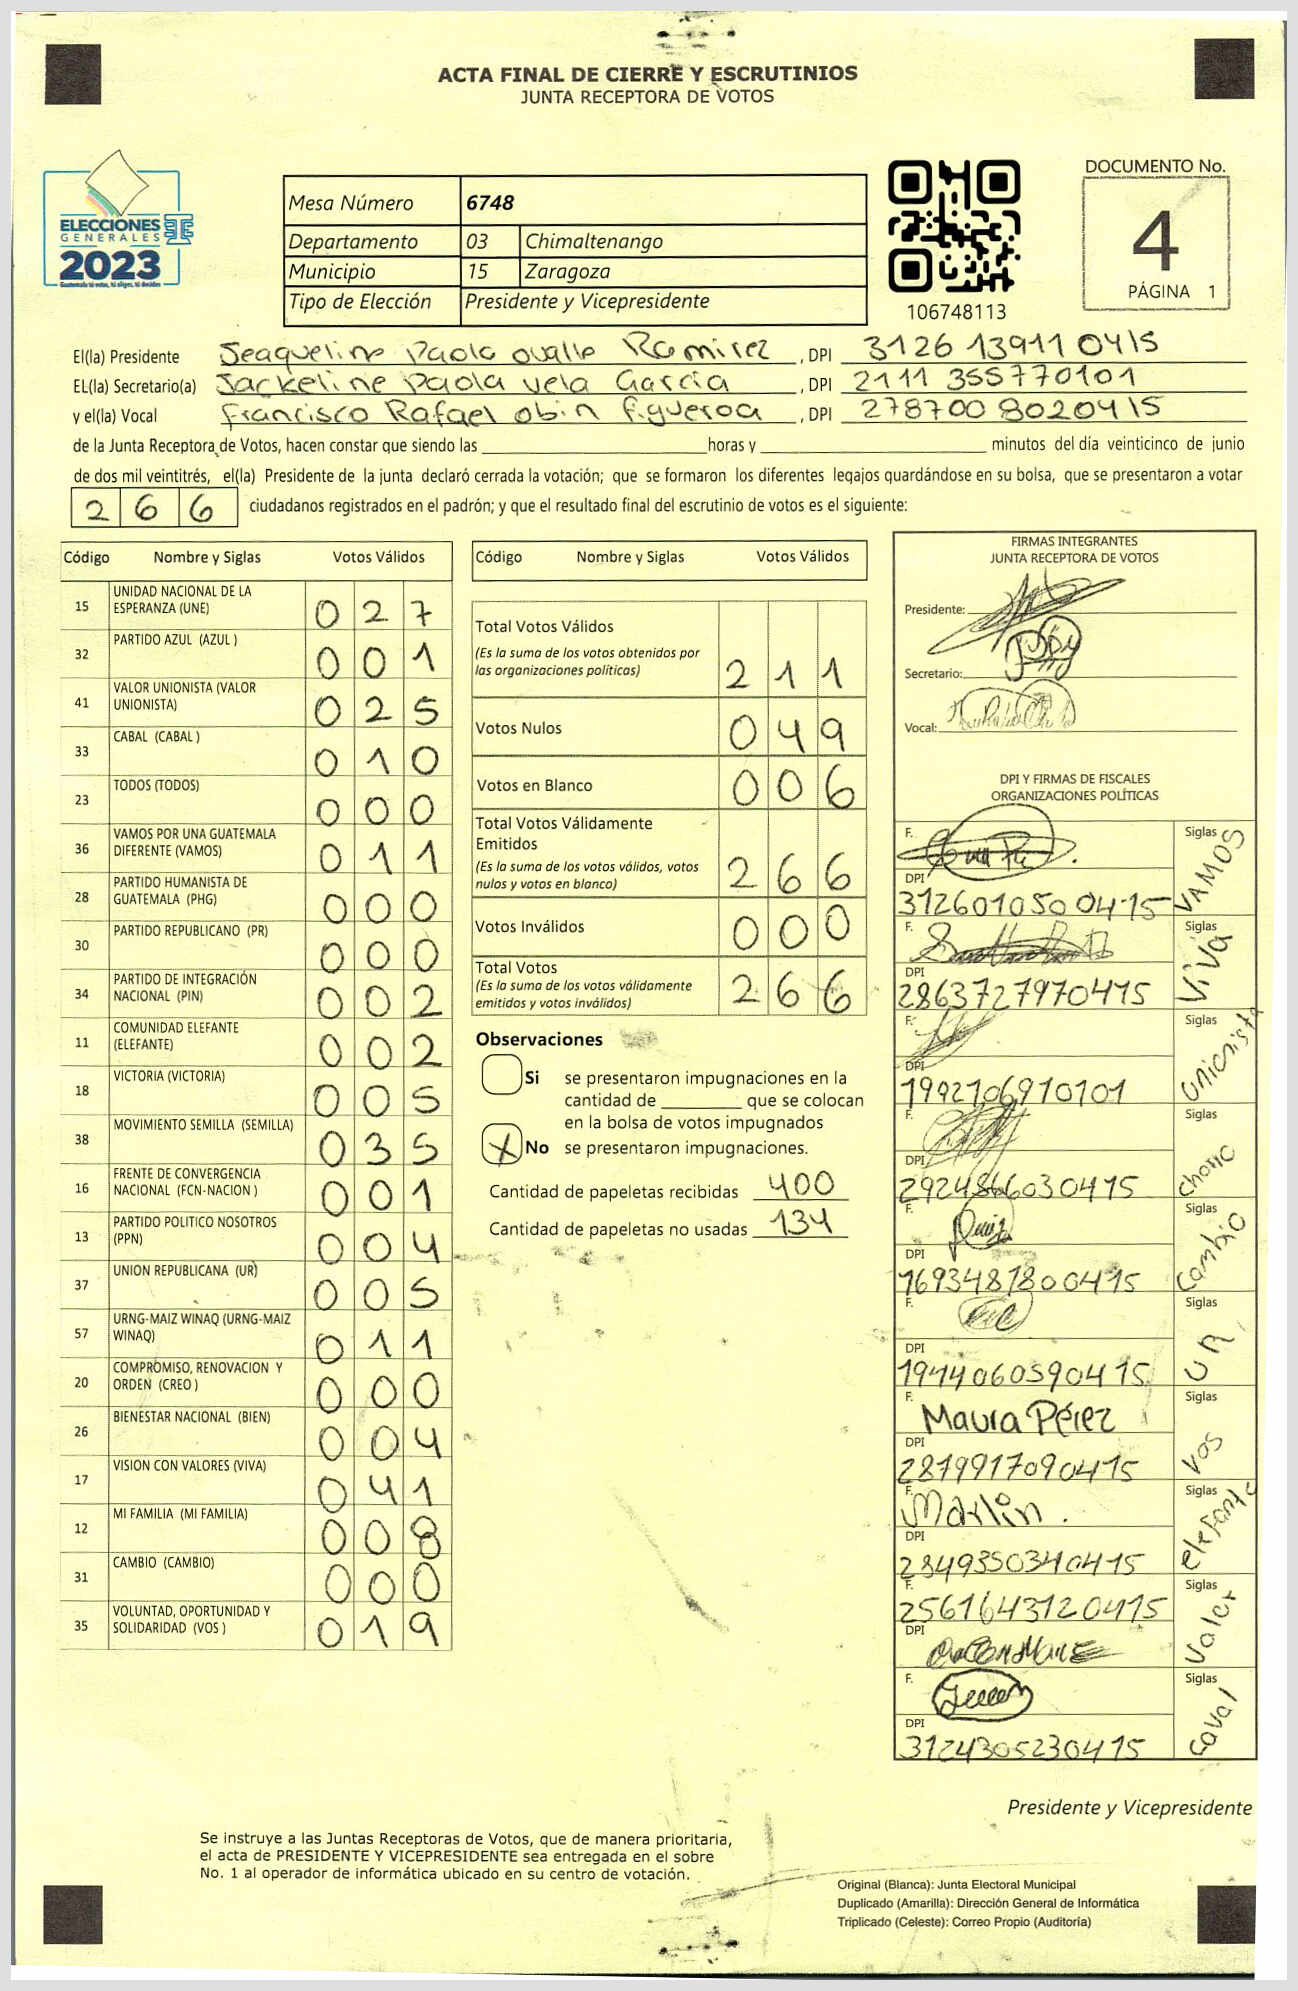 ACTA FINAL DE CIERRE Y ESCRUTINIOS
JUNTA RECEPTORA DE VOTOS
ELECCIONES
GENERALES
2023
Guatemala tú votas, tú eliges, tú decides
Mesa Número 6748
Departamento 03 Chimaltenango
Municipio 15 Zaragoza
Tipo de Elección Presidente y Vicepresidente
106748113
DOCUMENTO No.
4
PÁGINA 1
El(la) Presidente Jeaqueline Paola ovalle Ramirez, DPI 3126 13911 0415
EL(la) Secretario(a) Jackeline Paola vela García, DPI 2111 355770101
y el(la) Vocal Francisco Rafael obin figueroa, DPI 278700 8020415
de la Junta Receptora de Votos, hacen constar que siendo las horas y minutos del día veinticinco de junio
de dos mil veintitrés, el(la) Presidente de la junta declaró cerrada la votación; que se formaron los diferentes legajos quardándose en su bolsa, que se presentaron a votar
266 ciudadanos registrados en el padrón; y que el resultado final del escrutinio de votos es el siguiente:
Código Nombre y Siglas Votos Válidos
15 UNIDAD NACIONAL DE LA ESPERANZA (UNE) 027
32 PARTIDO AZUL (AZUL ) 001
41 VALOR UNIONISTA (VALOR UNIONISTA) 025
33 CABAL (CABAL ) 010
23 TODOS (TODOS) 000
36 VAMOS POR UNA GUATEMALA DIFERENTE (VAMOS) 011
28 PARTIDO HUMANISTA DE GUATEMALA (PHG) 000
30 PARTIDO REPUBLICANO (PR) 000
34 PARTIDO DE INTEGRACIÓN NACIONAL (PIN) 002
11 COMUNIDAD ELEFANTE (ELEFANTE) 002
18 VICTORIA (VICTORIA) 005
38 MOVIMIENTO SEMILLA (SEMILLA) 035
16 FRENTE DE CONVERGENCIA NACIONAL (FCN-NACION ) 001
13 PARTIDO POLITICO NOSOTROS (PPN) 004
37 UNION REPUBLICANA (UR) 005
57 URNG-MAIZ WINAQ (URNG-MAIZ WINAQ) 011
20 COMPROMISO, RENOVACION Y ORDEN (CREO ) 000
26 BIENESTAR NACIONAL (BIEN) 004
17 VISION CON VALORES (VIVA) 041
12 MI FAMILIA (MI FAMILIA) 008
31 CAMBIO (CAMBIO) 000
35 VOLUNTAD, OPORTUNIDAD Y SOLIDARIDAD (VOS ) 019
Código Nombre y Siglas Votos Válidos
Total Votos Válidos 211
(Es la suma de los votos obtenidos por
las organizaciones políticas)
Votos Nulos 049
Votos en Blanco 006
Total Votos Válidamente
Emitidos 266
(Es la suma de los votos válidos, votos
nulos y votos en blanco)
Votos Inválidos 000
Total Votos 266
(Es la suma de los votos válidamente
emitidos y votos inválidos)
Observaciones
Si se presentaron impugnaciones en la
cantidad de que se colocan
en la bolsa de votos impugnados
X No se presentaron impugnaciones.
Cantidad de papeletas recibidas 400
Cantidad de papeletas no usadas 134
FIRMAS INTEGRANTES
JUNTA RECEPTORA DE VOTOS
Presidente:
Secretario:
Vocal:
DPI Y FIRMAS DE FISCALES
ORGANIZACIONES POLÍTICAS
F. Siglas VAMOS
DPI 3126010500415
F. Siglas Viva
DPI 2863727970415
F. Siglas Unionista
DPI 1992106910101
F. Siglas
DPI 2924866030415
F. Siglas Cambio
DPI 1693481800415
F. Siglas UR
DPI 1914060590415
F. Maura Pérez Siglas VOS
DPI 2819917090415
F. Marlin. Siglas elefante
DPI 2849350340415
F. 2561643120415 Siglas Valor
DPI
F. Siglas Caval
DPI 3124305230415
Presidente y Vicepresidente
Se instruye a las Juntas Receptoras de Votos, que de manera prioritaria,
el acta de PRESIDENTE Y VICEPRESIDENTE sea entregada en el sobre
No. 1 al operador de informática ubicado en su centro de votación.
Original (Blanca): Junta Electoral Municipal
Duplicado (Amarilla): Dirección General de Informática
Triplicado (Celeste): Correo Propio (Auditoría)